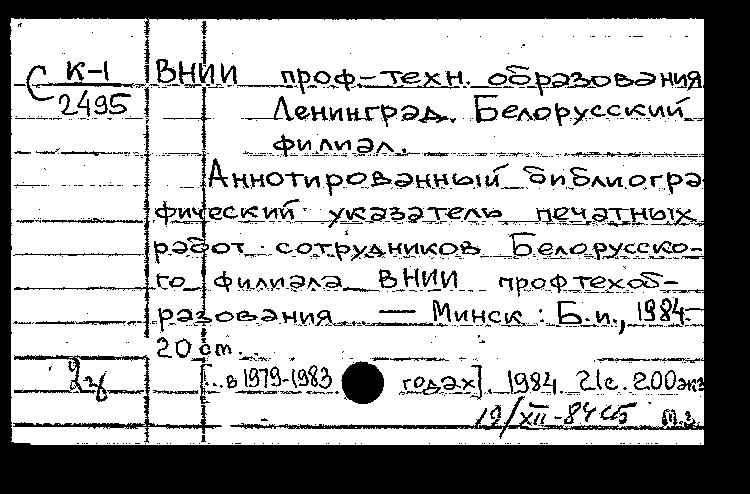 С К-1 ВНИИ проф.-техн. образования
2495 Ленинград. Белорусский
филиал.
Аннотированный библиогра
фический указатель печатных
работ сотрудников Белорусско-
го филиала ВНИИ профтехоб-
разования — Минск : Б.и., 1984-
20 см.
2 [...в 1979-1983 годах]. 1984. 21с. 200экз
19/XII-84